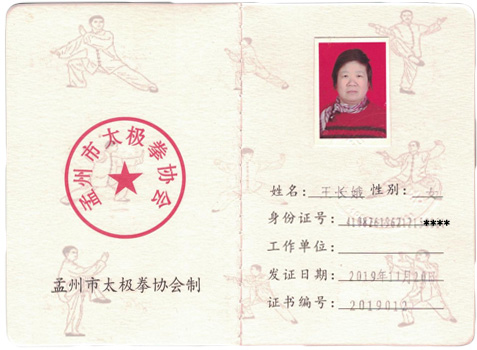 孟州市太极拳协会
孟州市太极拳协会制
姓名：王长娥 性别：女
身份证号：
工作单位：
发证日期：2019年11月20日
证书编号：2019012